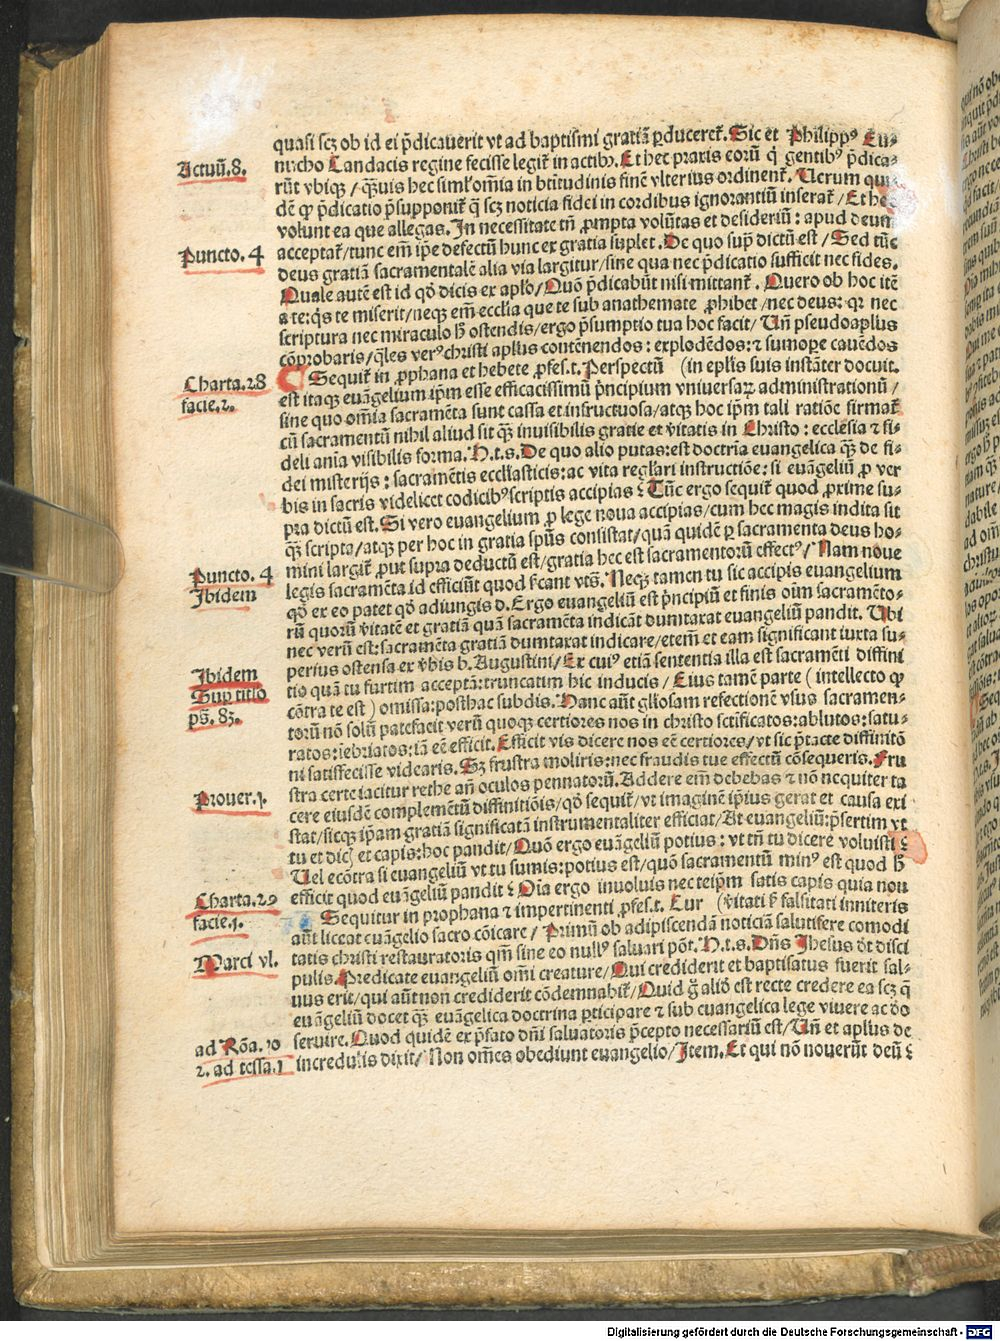 quasi scꝫ ob id ei p̄dicauerit vt ad baptismi gratiā ꝑduceret̄. Sic et Philippꝰ Eu-
Actuū.8.
nucho Candacis regine fecisse legit̄ in actibꝫ. Et hec praxis eorū q̄ gentibꝰ p̄dica-
rūt vbiqꝫ/ q̄uis hec siml̓ om̄ia in btitudinis finē vlterius ordinent̄. Uerum qui
dē qꝫ p̄dicatio p̄supponit̄ q̄ scꝫ noticia fidei in cordibus ignorantiū inserat̄/ Et he
volunt ea que allegas. In necessitate tn̄ ꝓmpta volūtas et desideriū: apud deum
Puncto.4
acceptat̄/tunc em̄ ip̄e defectū hunc ex gratia suplet. De quo sup̄ dictū est/ Sed tūc
deus gratiā sacramentalē alia via largitur/sine qua nec p̄dicatio sufficit nec fides.
Quale autē est id qd̄ dicis ex aplo/ Quō p̄dicabūt nisi mittant̄. Quero ob hoc itē
a te: q̄s te miserit/neqꝫ em̄ ecclia que te sub anathemate ꝓhibet/nec deus: qꝛ nec
scriptura nec miraculo hꝫ ostendis/ergo p̄sumptio tua hoc facit/ Un̄ pseudoaplus
cōprobaris/q̄les verꝰ christi aplus contēnendos: explodēdos: ⁊ sumope cauēdos
Charta.28
Sequit̄ in ꝓphana et hebete ꝓfes.t. Perspectū (in eplis suis instāter docuit.
facie.2.
est itaqꝫ euāgelium ip̄m esse efficacissimū p̄ncipium vniuersaꝝ administrationū/
sine quo om̄ia sacramēta sunt cassa et infructuosa/atqꝫ hoc ip̄m tali ratiōe firmat̄
cū sacramentū nihil aliud sit q̄ꝫ inuisibilis gratie et v̄itatis in Christo: ecclesia ⁊ fi-
deli anīa visibilis forma. H.t.s. De quo alio putas: est doctrīa euangelica q̄ꝫ de fi-
dei misterijs: sacramētis eccl̓iasticis: ac vita regl̓ari instructiōe: si euāgeliū ꝓ ver
bis in sacris videlicet codicibꝰ scriptis accipias? Tūc ergo sequit̄ quod ꝓxime su-
pra dictū est. Si vero euangelium ꝓ lege noua accipias/cum hec magis indita sit
q̄ꝫ scripta/atqꝫ per hoc in gratia spūs consistat/quā quidē ꝑ sacramenta deus ho-
Puncto.4
mini largit̄ ꝓut supra deductū est/gratia hec est sacramentorū effectꝰ/ Nam noue
Ibidem
legis sacramēta id efficiūt quod sicant vts̄. Neqꝫ tamen tu sic accipis euangelium
qd̄ ex eo patet qd̄ adiungis d. Ergo euangeliū est p̄ncipiū et finis oim̄ sacramēto-
rū quorū v̄itatē et gratiā quā sacramēta indicāt dumtaxat euangeliū pandit. Ubi
nec verū est: sacramēta gratiā dumtaxat indicare/etem̄ et eam significant iuxta su-
Ibidem
perius ostensa ex v̄bis b. Augustini/ Ex cuiꝰ etiā sententia illa est sacramēti diffini
Sup titlo
tio quā tu furtim acceptā: truncatim hic inducis/ Eius tamē parte (intellecto qꝫ
ps̄.83.
cōtra te est) omissa: posthac subdis. Hanc aūt gl̓iosam refectionē vsus sacramen-
torū nō solū patefacit verū quoqꝫ certiores nos in christo sctificatos: ablutos: satu-
ratos: iebriatos: iā eē efficit. Efficit vis dicere nos eē certiores/vt sic p̄tacte diffinitō
ni satisfecisse videaris. Sꝫ frustra moliris: nec fraudis tue effectū cōsequeris. Fru
Prouer.1.
stra certe iacitur rethe an̄ oculos pennatorū. Addere em̄ debebas ⁊ nō nequiter ta
cere eiusdē complemētū diffinitiōis/qd̄ sequit̄/vt imaginē ip̄ius gerat et causa exi
stat/sicqꝫ ip̄am gratiā significatā instrumentaliter efficiat/ At euangeliū: p̄sertim vt
tu et dicꝫ et capis: hoc pandit/ Quō ergo euāgeliū potius: vt tn̄ tu dicere voluisti?
Uel ecōtra si euangeliū vt tu sumis: potius est/quō sacramentū minꝰ est quod hꝫ
Charta.29
efficit quod euāgeliū pandit? Oīa ergo inuoluis nec teip̄m satis capis quia non
facie.1.
Sequitur in prophana ⁊ impertinenti ꝓfes.t. Cur (v̄itati s̄ falsitati inniteris
aūt liceat euāgelio sacro cōicare/ Primū ob adipiscendā noticiā salutifere comodi
Marci vl.
tatis christi restauratoris qm̄ sine eo nullꝰ saluari pōt. H.t.s. Dn̄s Ihesus dt̄ disci
pulis. Predicate euangeliū om̄i creature/ Qui crediderit et baptisatus fuerit sal-
uus erit/qui aūt non crediderit cōdemnabit̄/ Quid g̊ aliō est recte credere ea scꝫ q̄
euāgeliū docet q̄ꝫ euāgelica doctrina ꝑticipare ⁊ sub euangelica lege viuere ac dō
ad Rōa.10
seruire. Quod quidē ex p̄fato dn̄i saluatoris p̄cepto necessariū est/ Un̄ et aplus de
2. ad tessa.1
incredulis dixit/ Non om̄es obediunt euangelio/ Item. Et qui nō nouerūt deū?
Digitalisierung gefördert durch die Deutsche Forschungsgemeinschaft - DFG